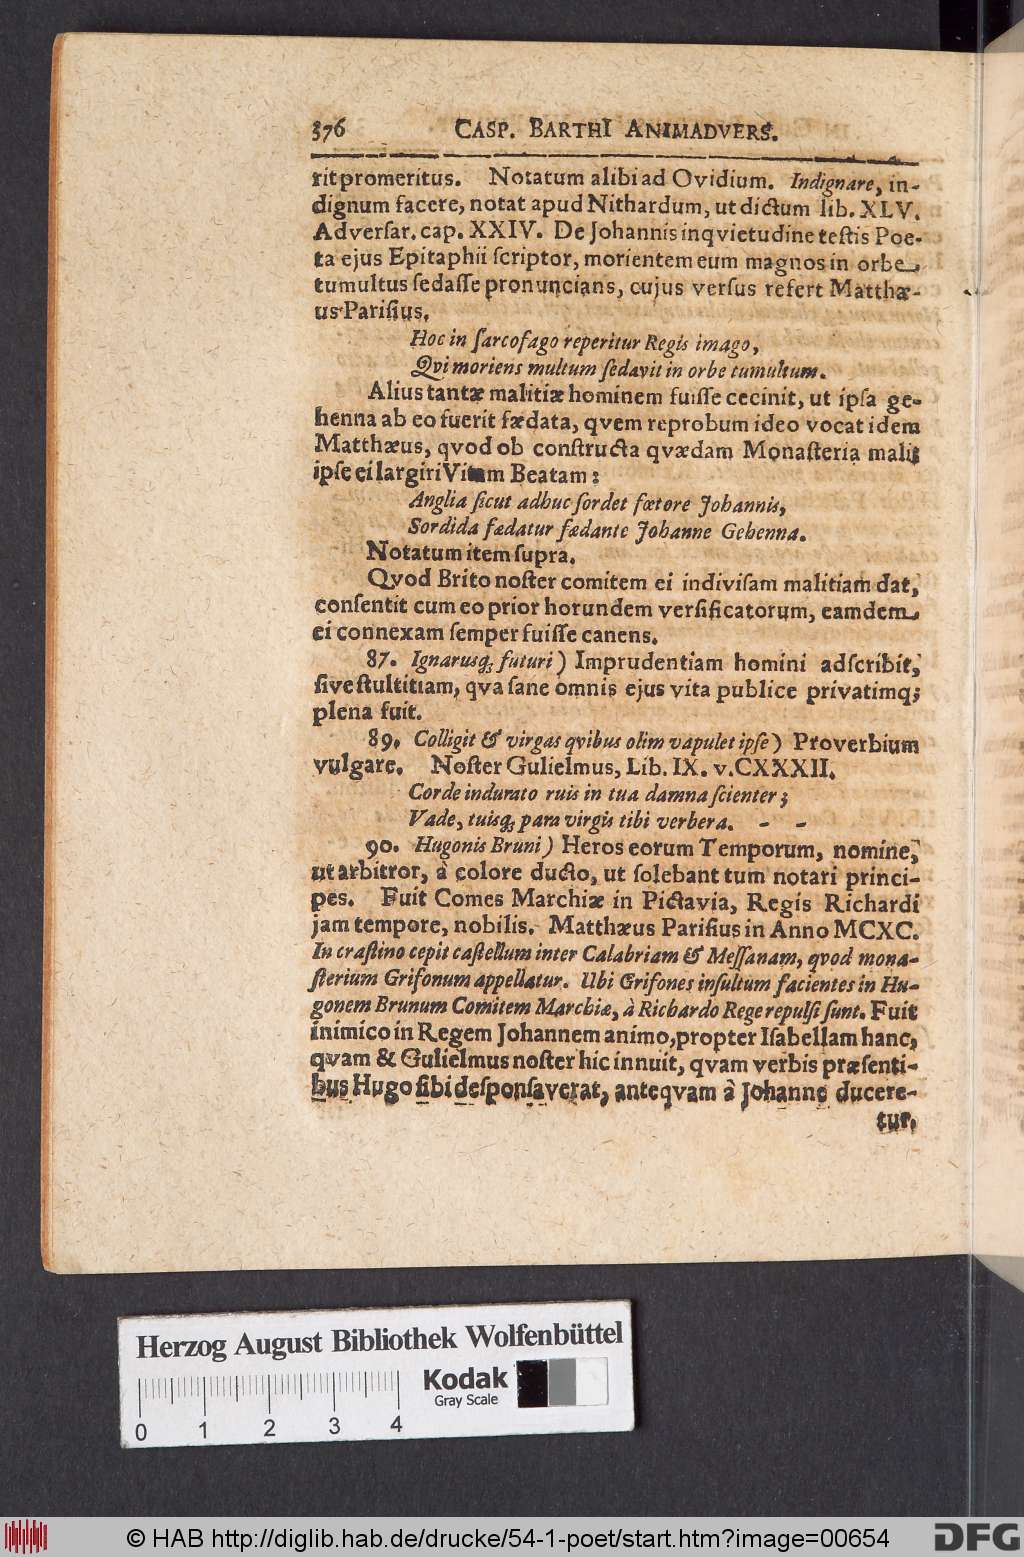 376 CASP. BARTHI ANIMADVERS.
rit promeritus. Notatum alibi ad Ovidium. Indignare, in-
dignum facere, notat apud Nithardum, ut dictum lib. XLV.
Adverſar. cap. XXIV. De Johannis inqvietudine teſtis Poe-
ta ejus Epitaphii ſcriptor, morientem eum magnos in orbe
tumultus ſedaſſe pronuncians, cujus verſus refert Matthæ-
us Pariſius.
Hoc in ſarcofago reperitur Regis imago,
Qvi moriens multum ſedavit in orbe tumultum.
Alius tantæ malitiæ hominem fuiſſe cecinit, ut ipſa ge-
henna ab eo fuerit fædata, qvem reprobum ideo vocat idem
Matthæus, qvod ob conſtructa qvædam Monaſteria malit
ipſe ei largiri Vitam Beatam:
Anglia ſicut adhuc ſordet fœtore Johannis,
Sordida fædatur fædante Johanne Gehenna.
Notatum item ſupra.
Qvod Brito noſter comitem ei indiviſam malitiam dat,
conſentit cum eo prior horundem verſificatorum, eamdem
ei connexam ſemper fuiſſe canens.
87. Ignarusq; futuri) Imprudentiam homini adſcribit,
ſive ſtultitiam, qva ſane omnis ejus vita publice privatimq;
plena fuit.
89. Colligit & virgas qvibus olim vapulet ipſe) Proverbium
vulgare. Noſter Gulielmus, Lib. IX. v. CXXXII.
Corde indurato ruis in tua damna ſcienter;
Vade, tuisq; para virgis tibi verbera. - -
90. Hugonis Bruni) Heros eorum Temporum, nomine,
ut arbitror, à colore ducto, ut ſolebant tum notari princi-
pes. Fuit Comes Marchiæ in Pictavia, Regis Richardi
jam tempore, nobilis. Matthæus Pariſius in Anno MCXC.
In craſtino cepit caſtellum inter Calabriam & Meſſanam, qvod mona-
ſterium Grifonum appellatur. Ubi Grifones inſultum facientes in Hu-
gonem Brunum Comitem Marchiæ, à Richardo Rege repulſi ſunt. Fuit
inimico in Regem Johannem animo, propter Iſabellam hanc,
qvam & Gulielmus noſter hic innuit, qvam verbis præſenti-
bus Hugo ſibi deſponſaverat, anteqvam à Johanne ducere-
tur.
Herzog August Bibliothek Wolfenbüttel
Kodak
Gray Scale
0 1 2 3 4
© HAB http://diglib.hab.de/drucke/54-1-poet/start.htm?image=00654
DFG